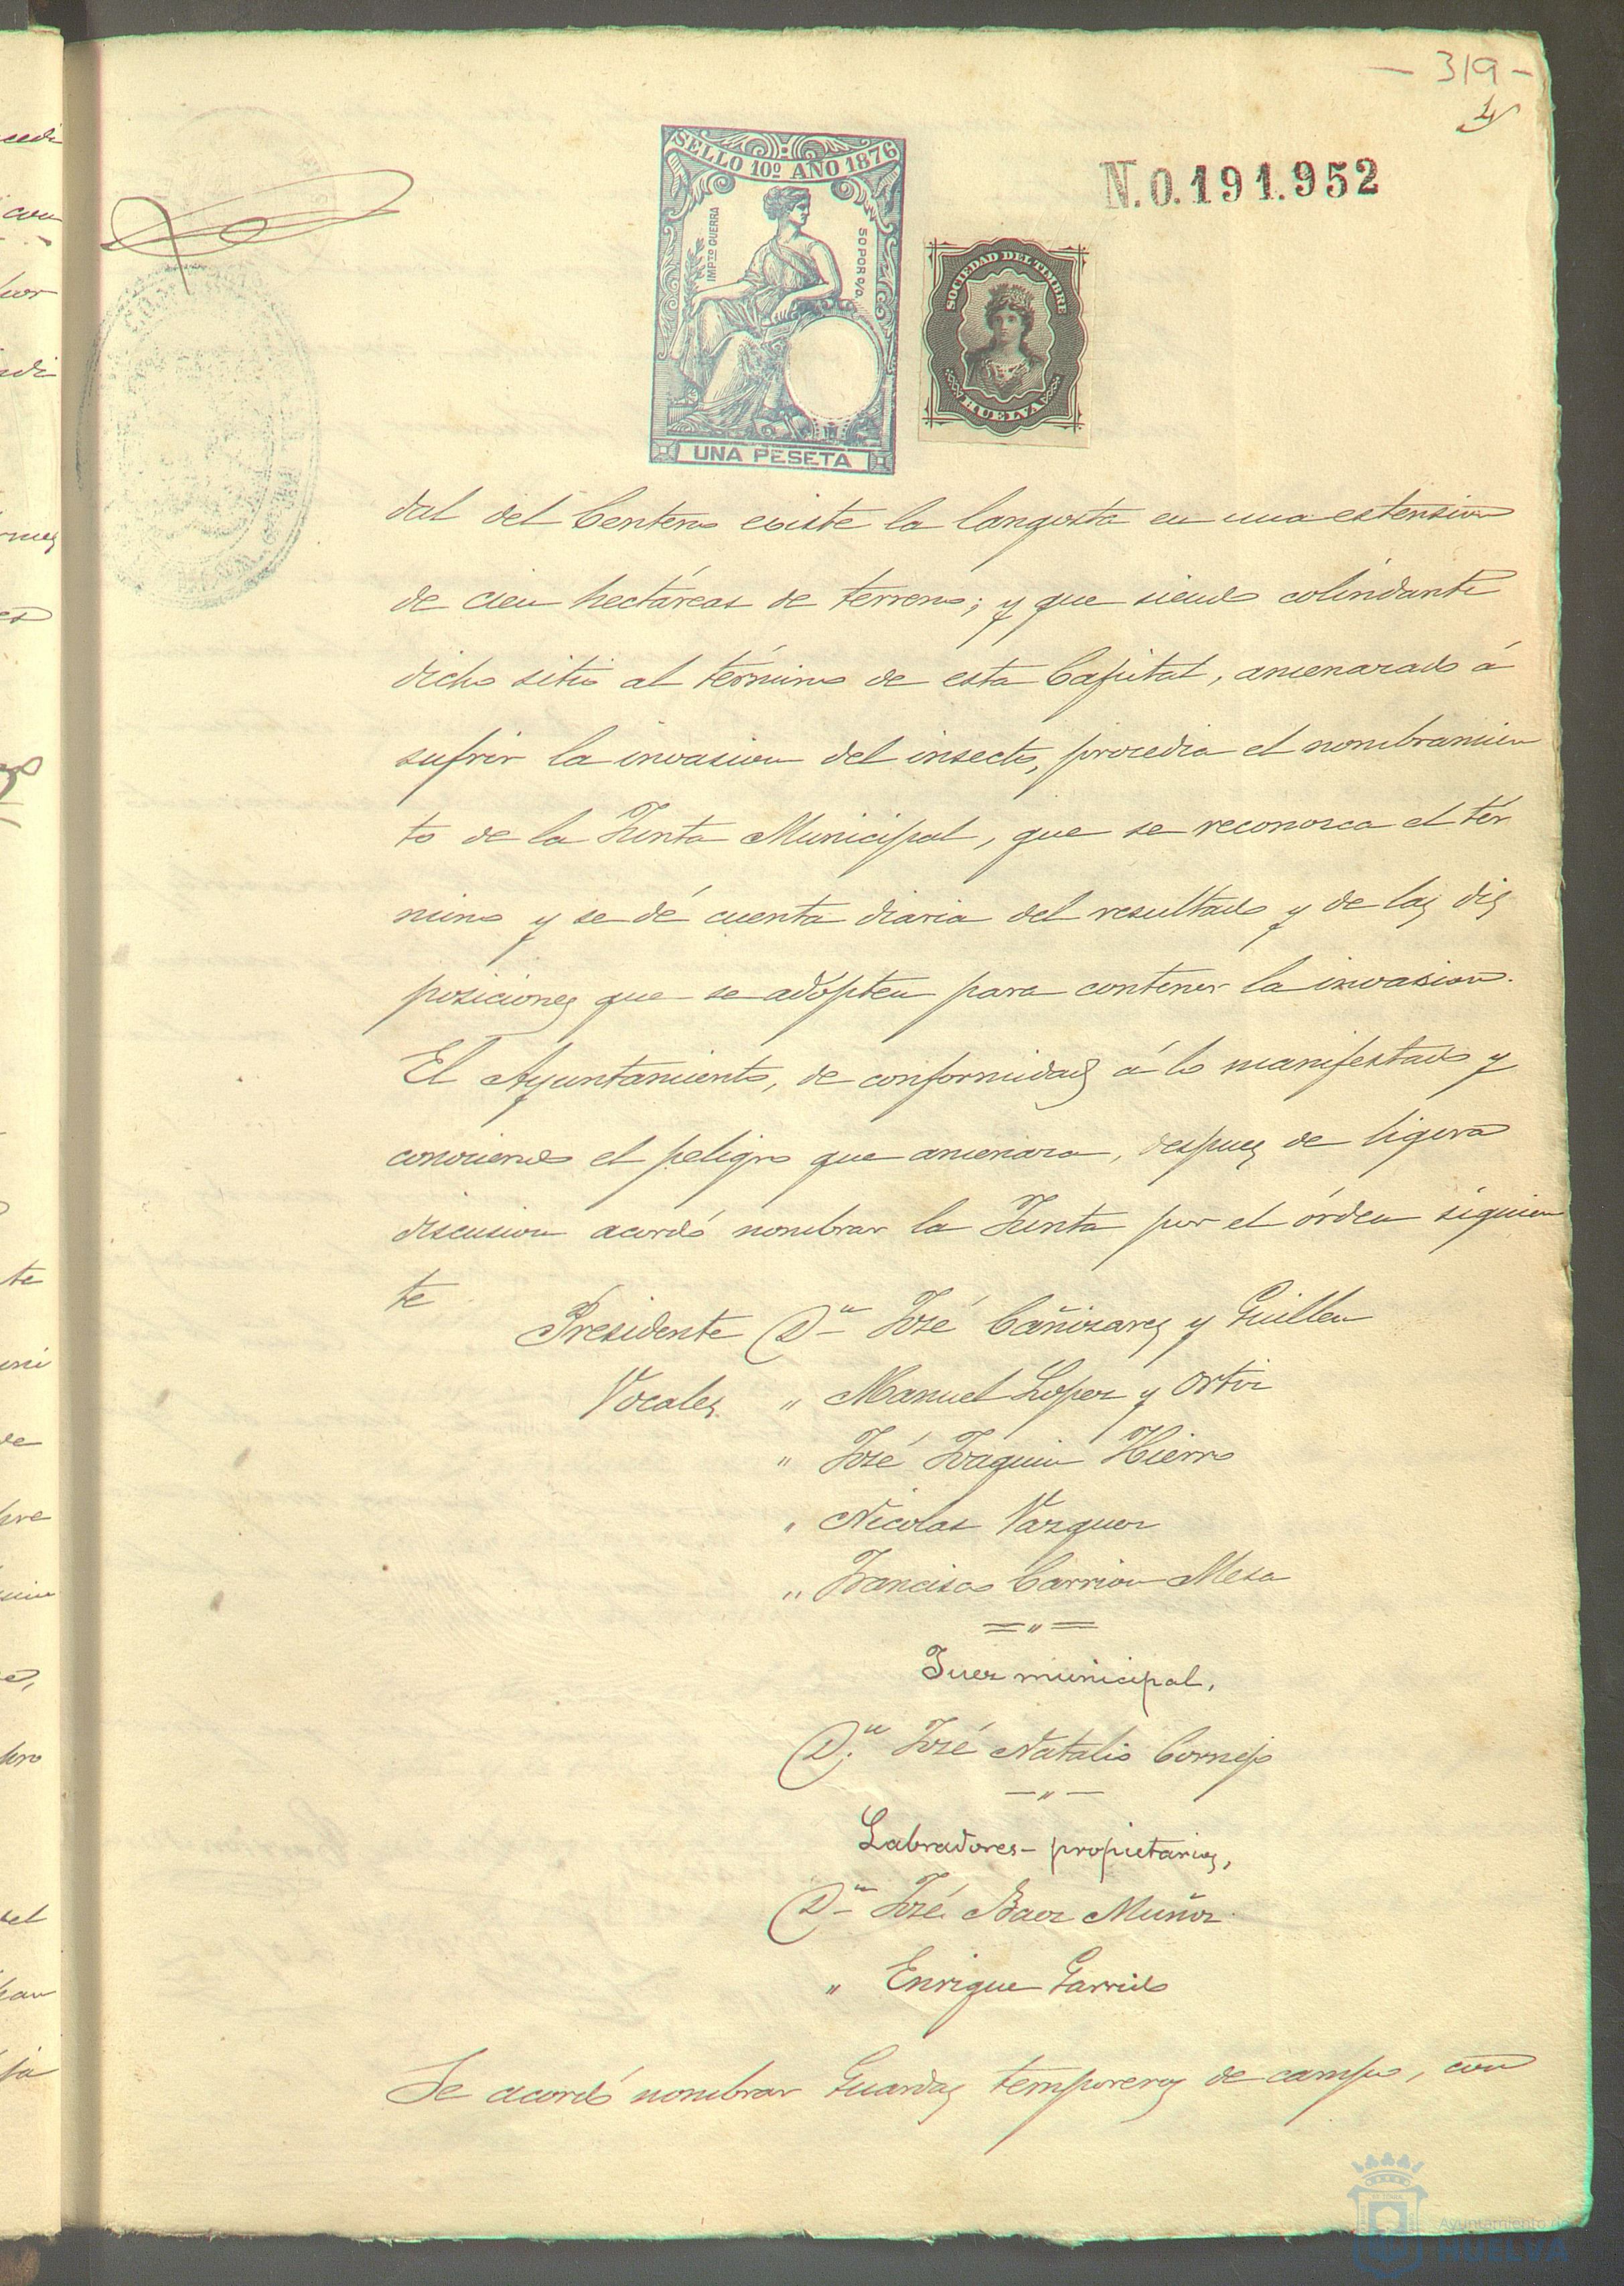 - 319 -
SELLO 10º AÑO 1876
IMPTO GUERRA
50 POR 0/0
UNA PESETA
N.0.191.952
SOCIEDAD DEL TIMBRE
HUELVA
dal del Centeno existe la langosta en una estension
de cien hectáreas de terreno; y que siendo colindante
dicho sitio al término de esta Capital, amenazado á
sufrir la invasion del insecto, procedia el nombramien
to de la Junta Municipal, que se reconozca el tér
mino y se dé cuenta diaria del resultado y de las dis
posiciones que se adopten para contener la invasion.
El Ayuntamiento, de conformidad á lo manifestado y
conociendo el peligro que amenaza, despues de ligera
discusion acordó nombrar la Junta por el órden siguien
te
Presidente Dn José Cañizares y Guillen
Vocales " Manuel Lopez y Ortiz
" José Joaquin Hierro
" Nicolas Vazquez
" Francisco Carrion Mesa
="=
Juez municipal,
Dn José Natalio Cornejo
-"-
Labradores-propietarios,
Dn José Baez Muñoz
" Enrique Garrido
Se acordó nombrar Guardas temporeros de campo, con
Ayuntamiento de
HUELVA